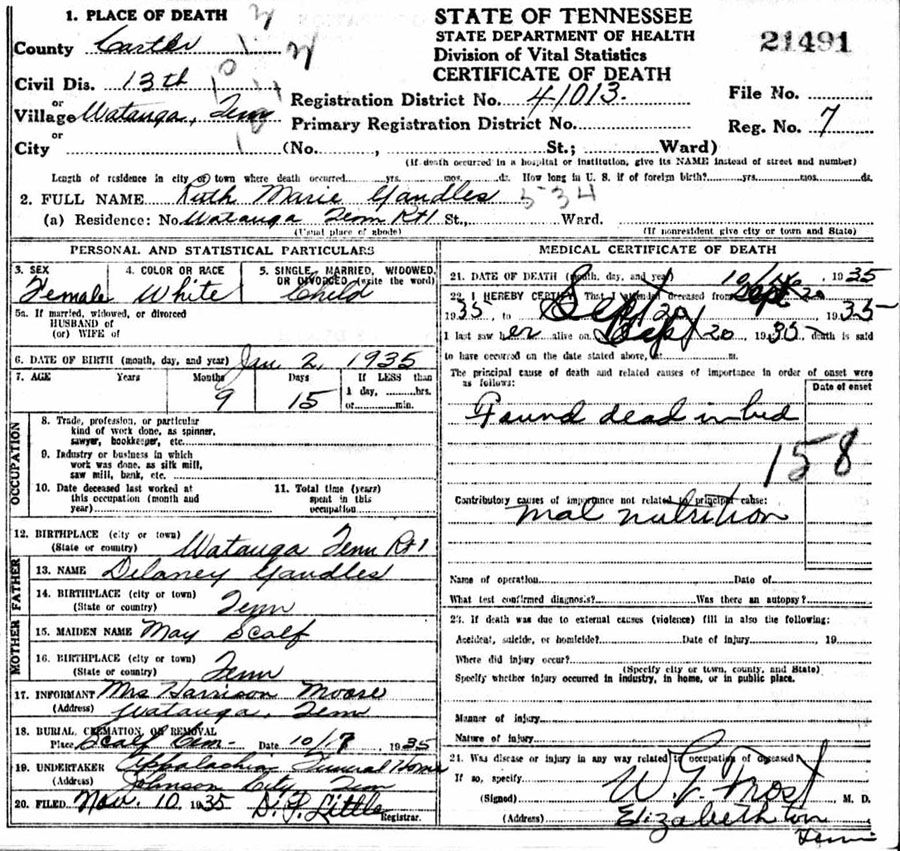 1. PLACE OF DEATH
County Carter
Civil Dis. 13th
or
Village Watauga, Tenn
or
City (No. , St.; Ward)
STATE OF TENNESSEE
STATE DEPARTMENT OF HEALTH
Division of Vital Statistics
CERTIFICATE OF DEATH
Registration District No. 41013.
Primary Registration District No.
21491
File No.
Reg. No. 7
(If death occurred in a hospital or institution, give its NAME instead of street and number)
Length of residence in city or town where death occurred yrs. mos. ds. How long in U. S. if of foreign birth? yrs. mos. ds.
2. FULL NAME Ruth Marie Gandles 534
(a) Residence: No. Watauga Tenn Rt 1 St., Ward.
(Usual place of abode) (If nonresident give city or town and State)
PERSONAL AND STATISTICAL PARTICULARS
3. SEX
Female
4. COLOR OR RACE
White
5. SINGLE, MARRIED, WIDOWED, OR DIVORCED (write the word)
Child
5a. If married, widowed, or divorced
HUSBAND of
(or) WIFE of
6. DATE OF BIRTH (month, day, and year) Jan 2, 1935
7. AGE Years Months Days If LESS than
9 15 1 day, hrs.
or min.
OCCUPATION
8. Trade, profession, or particular
kind of work done, as spinner,
sawyer, bookkeeper, etc.
9. Industry or business in which
work was done, as silk mill,
saw mill, bank, etc.
10. Date deceased last worked at
this occupation (month and
year)
11. Total time (years)
spent in this
occupation
12. BIRTHPLACE (city or town)
(State or country) Watauga Tenn Rt 1
FATHER
13. NAME Delaney Gandles
14. BIRTHPLACE (city or town)
(State or country) Tenn
MOTHER
15. MAIDEN NAME May Scalf
16. BIRTHPLACE (city or town)
(State or country) Tenn
17. INFORMANT Mrs Harrison Moore
(Address) Watauga, Tenn
18. BURIAL, CREMATION, OR REMOVAL
Place Scalf Cem. Date 10/17 1935
19. UNDERTAKER Appalachian Funeral Home
(Address) Johnson City, Tenn
20. FILED Nov. 10 1935 D. S. Little
Registrar.
MEDICAL CERTIFICATE OF DEATH
21. DATE OF DEATH (month, day, and year) 10/16 1935
22. I HEREBY CERTIFY, That I attended deceased from Sept 20
1935, to Sept 20 1935
I last saw her alive on Sept 20 1935, death is said
to have occurred on the date stated above, at m.
The principal cause of death and related causes of importance in order of onset were
as follows:
Date of onset
Found dead in bed
158
Contributory causes of importance not related to principal cause:
mal nutrition
Name of operation Date of
What test confirmed diagnosis? Was there an autopsy?
23. If death was due to external causes (violence) fill in also the following:
Accident, suicide, or homicide? Date of injury 19
Where did injury occur?
(Specify city or town, county, and State)
Specify whether injury occurred in industry, in home, or in public place.
Manner of injury
Nature of injury
24. Was disease or injury in any way related to occupation of deceased?
If so, specify
(Signed) W. G. Frost M. D.
(Address) Elizabethton
Tenn